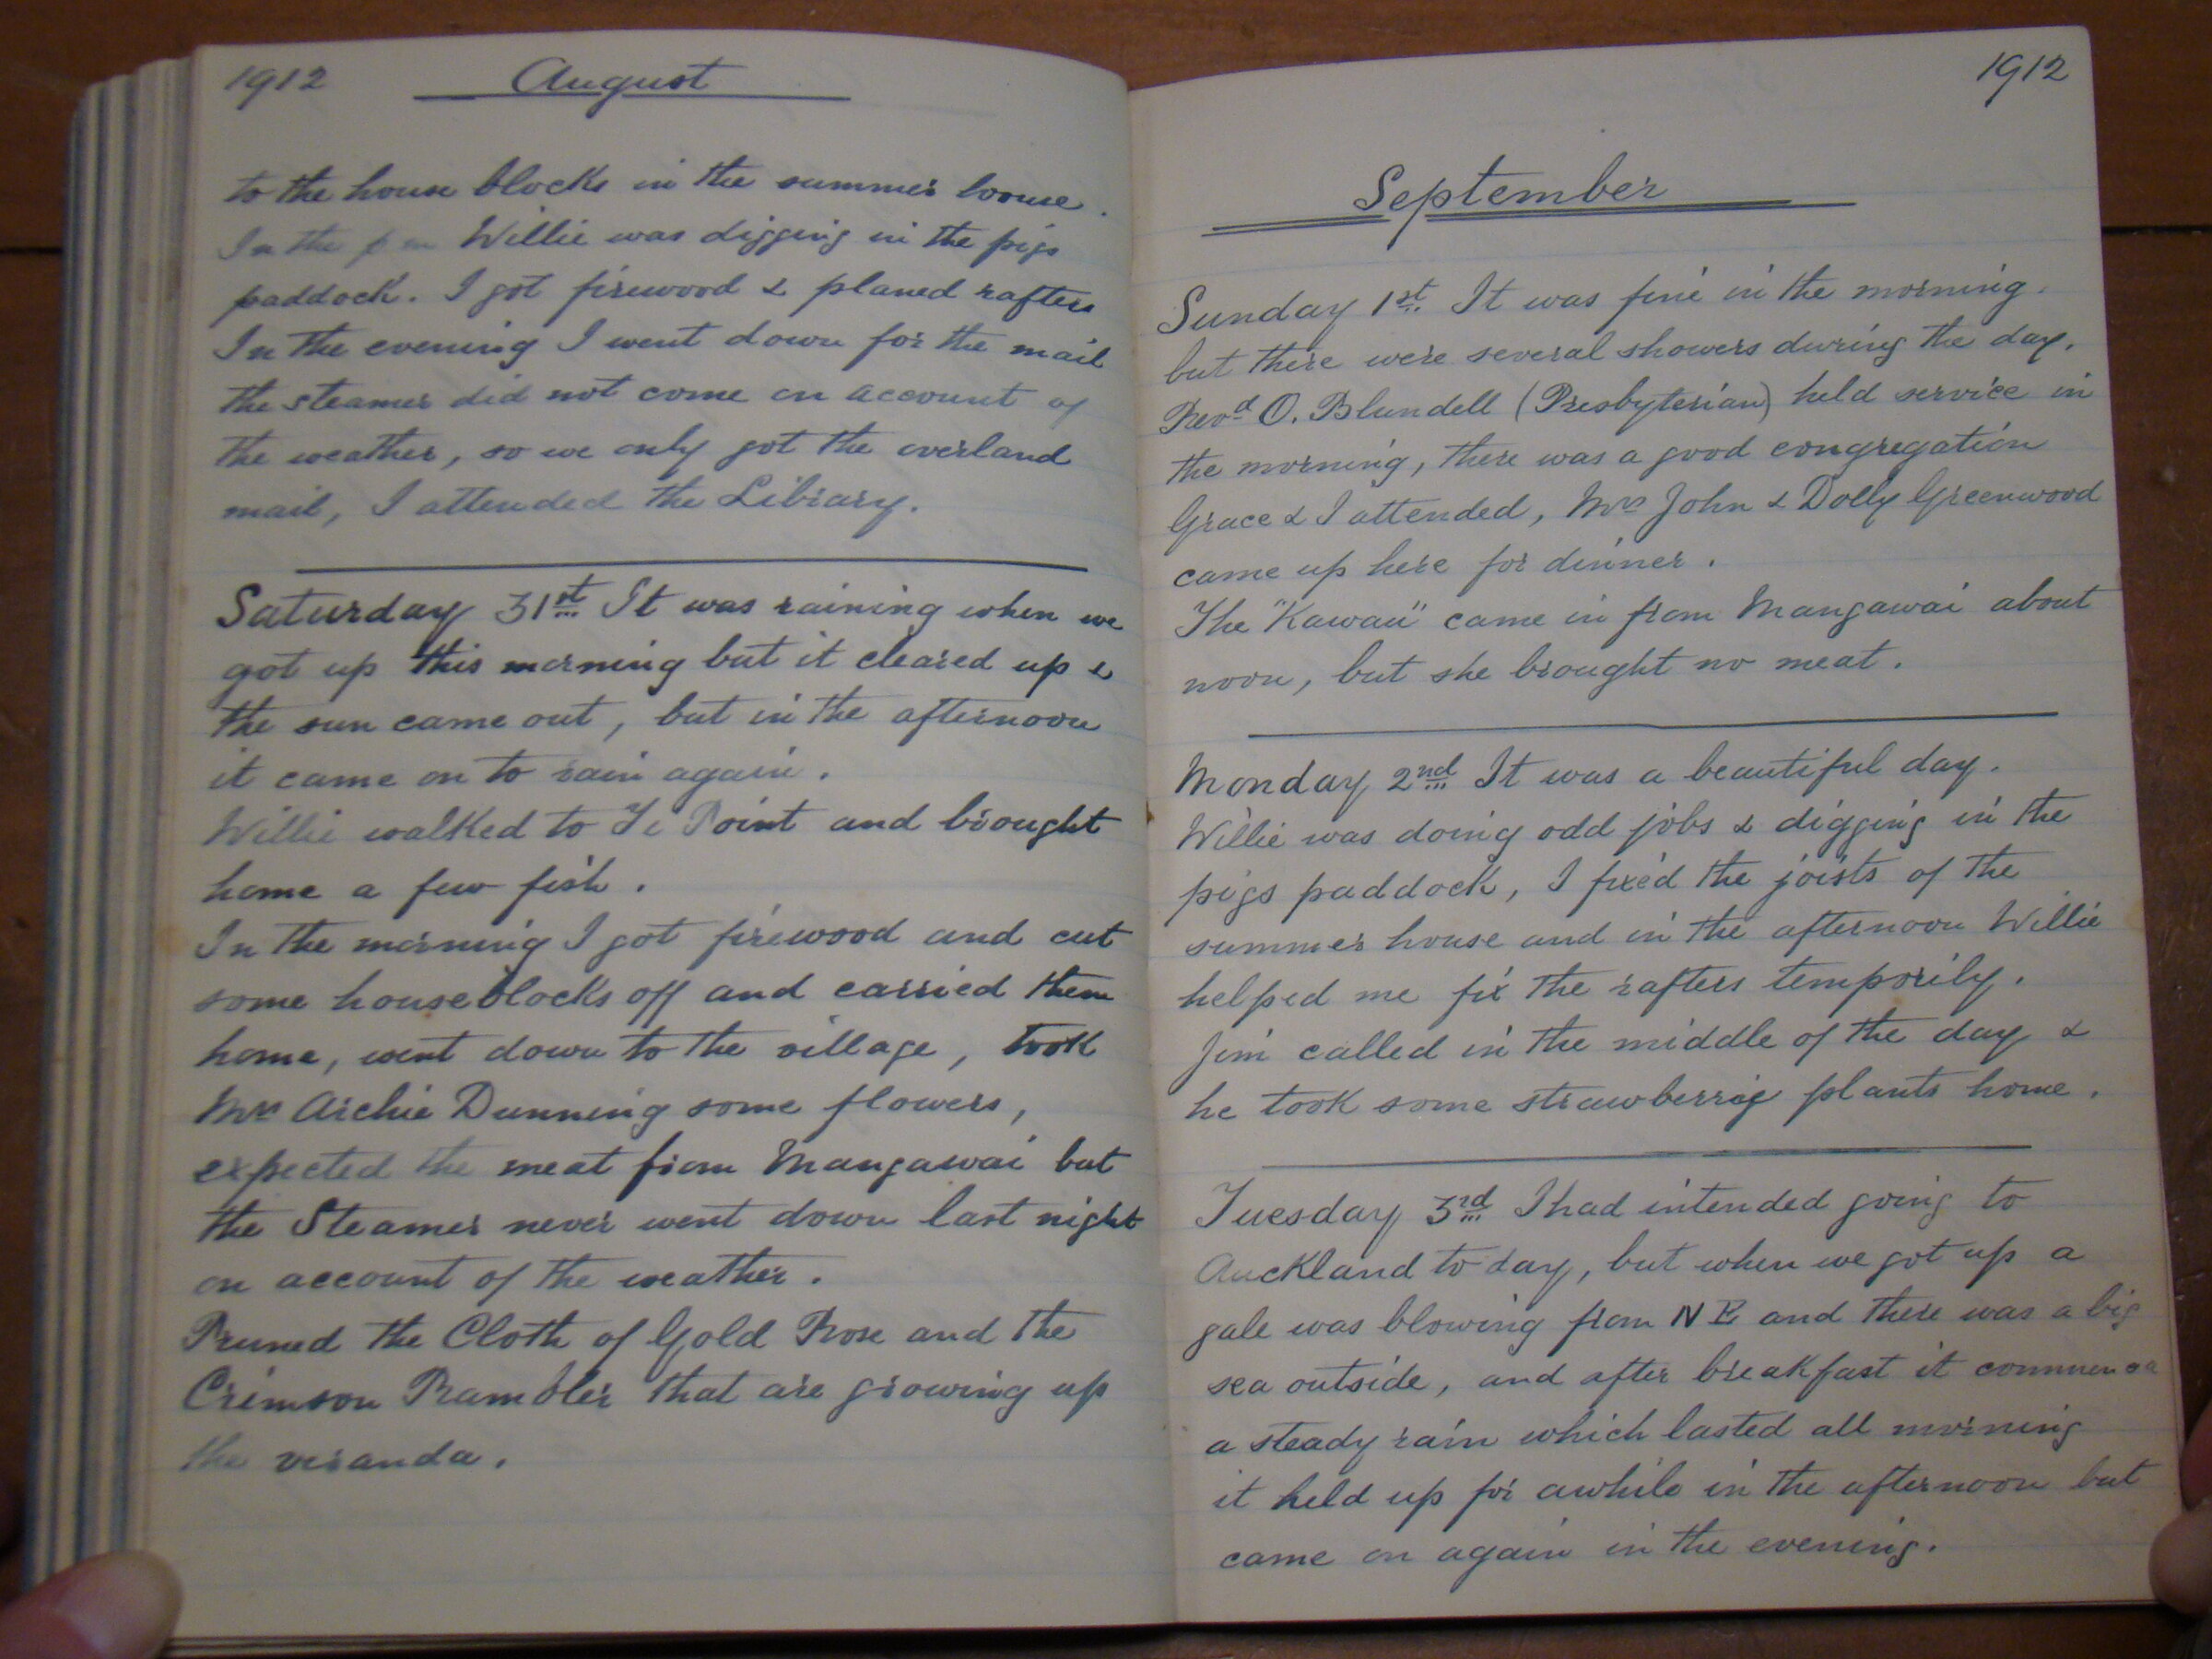 1912 August
to the house blocks in the summer house.
In the p m Willie was digging in the pigs
paddock. I got firewood & planed rafters
In the evening I went down for the mail
the steamer did not come on account of
the weather, so we only got the overland
mail, I attended the Library.
Saturday 31st It was raining when we
got up this morning but it cleared up &
the sun came out, but in the afternoon
it came on to rain again.
Willie walked to Ti Point and brought
home a few fish.
In the morning I got firewood and cut
some house blocks off and carried them
home, went down to the village, took
Mrs Archie Dunning some flowers,
expected the meat from Mangawai but
the Steamer never went down last night
on account of the weather.
Pruned the Cloth of Gold Rose and the
Crimson Rambler that are growing up
the veranda.
1912
September
Sunday 1st It was fine in the morning.
but there were several showers during the day.
Revd O. Blundell (Presbyterian) held service in
the morning, there was a good congregation
Grace & I attended, Mrs John & Dolly Greenwood
came up here for dinner.
The "Kawau" came in from Mangawai about
noon, but she brought no meat.
Monday 2nd It was a beautiful day.
Willie was doing odd jobs & digging in the
pigs paddock, I fixed the joists of the
summer house and in the afternoon Willie
helped me fix the rafters temporily.
Jim called in the middle of the day &
he took some strawberrie plants home.
Tuesday 3rd I had intended going to
Auckland to day, but when we got up a
gale was blowing from N E and there was a big
sea outside, and after breakfast it commence
a steady rain which lasted all morning
it held up for awhile in the afternoon but
came on again in the evening.